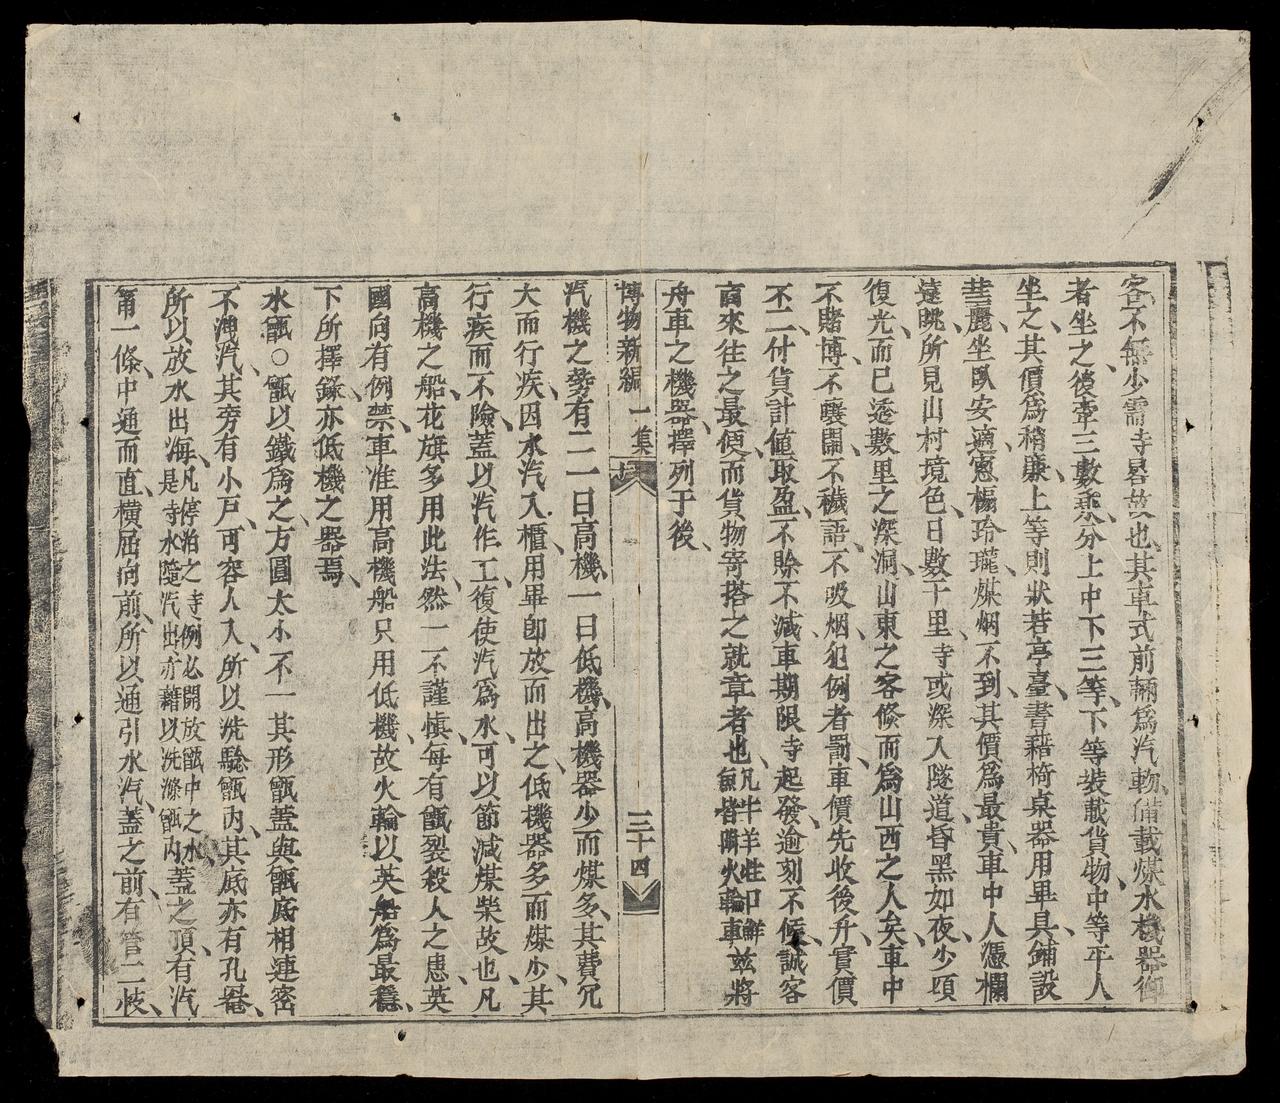 客不無少需寺晷故也其車式前輛爲汽物備載煤水機器御
者坐之後牽三數乘分上中下三等下等裝載貨物中等平人
坐之其價爲稍廉上等則狀若亭臺書藉椅桌器用畢具鋪設
華麗坐臥安適窓櫊玲瓏煤烟不到其價爲最貴車中人憑欄
遠眺所見山村境色日數千里寺或深入隧道昏黑如夜少頃
復光而已逶數里之深洞山東之客倏而爲山西之人矣車中
不賭博不嚷鬧不穢語不吸烟犯例者罰車價先收後升實價
不二付貨計値取盈不賒不減車期限寺起發逾刻不候誠客
商來往之最便而貨物寄搭之就章者也凡牛羊牲口鮮魚皆附火輪車兹將
舟車之機器擇列于後
博物新編 一集 三十四
汽機之勢有二一曰高機一曰低機高機器少而煤多其費冗
大而行疾因水汽入櫃用畢卽放而出之低機器多而煤少其
行疾而不險蓋以汽作工復使汽爲水可以節減煤柴故也凡
高機之船花旗多用此法然一不謹愼每有甑裂殺人之患英
國向有例禁車准用高機船只用低機故火輪以英船爲最穩
下所擇錄亦低機之器焉
水甑○甑以鐵爲之方圓大小不一其形甑蓋與甑底相連密
不洩汽其旁有小戶可容人入所以洗騐甑內其底亦有孔罨
所以放水出海凡停泊之寺例必開放甑中之水是寺水隨汽出亦藉以洗滌甑內蓋之頂有汽
第一條中通而直橫屈向前所以通引水汽蓋之前有管二枝